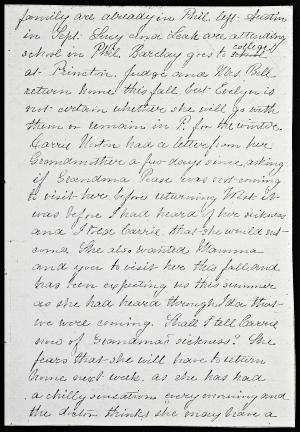 family are already in Phil. left Austin
in Sept. Lucy and Leak are attending
college
school in Phil. Barclay goes to school
at Princton. Judge and Mrs Bell
return home this fall but Evelyn is
not certain whether she will go with
them or remain in P. for the winter.
Carrie had a letter from her
Grandmother a few days since, asking
if Grandma Pease was not coming
to visit her before returning West. it
was before I had heard of her sickness
and I told Carrie that she would not
come. She also wanted Mamma
and you to visit her this fall and
has been expecting us this summer
as she had heard through Ida that
we were coming. Shall I tell Carrie
now of Grandma's sickness? She
fears that she will have to return
home next week. as she has had
a chilly sensation every morning and
the doctor thinks she may have a